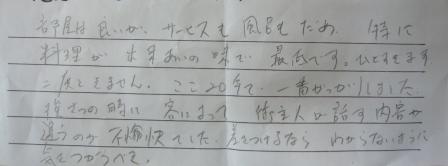 部屋は良いが、サービスも風呂もだめ、特に
料理が 味で 最低です。ひどすぎます
二度ときません。ここ20年で、一番がっかりしました
時に 客によって 御主人が話す内容が
違うのが不愉快でした。差をつけるなら わからないように
気をつかうべき。